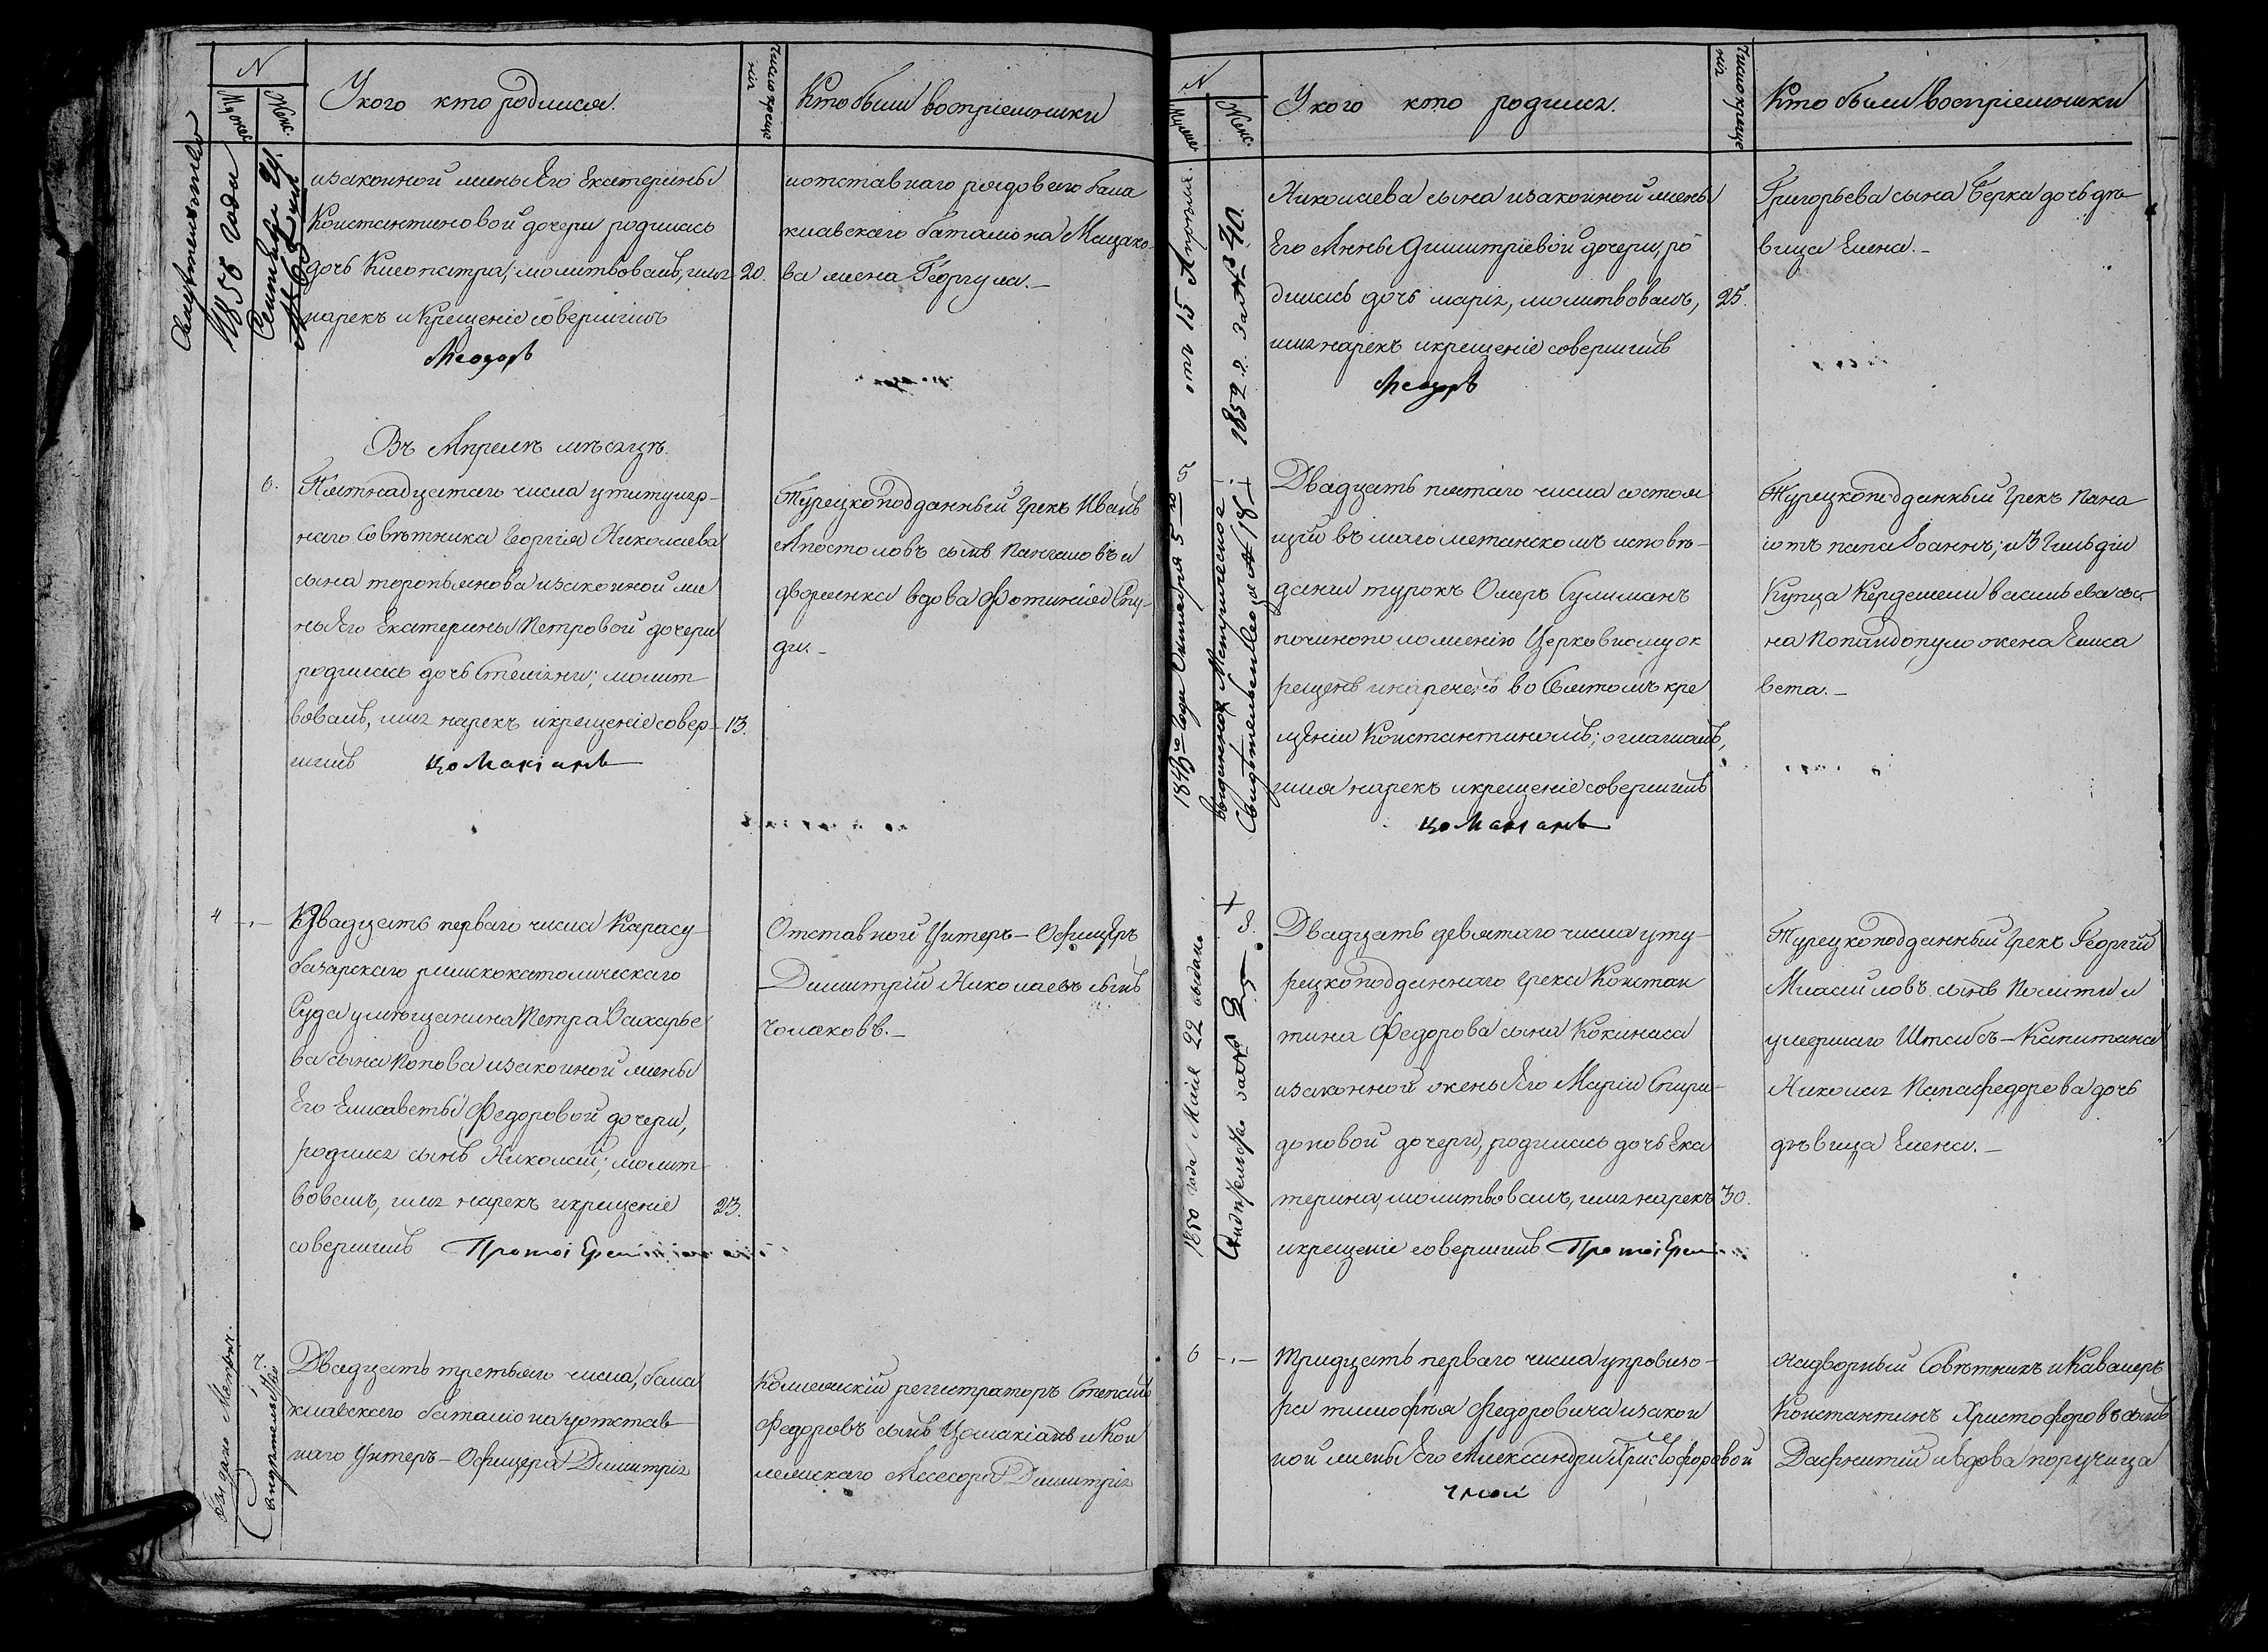 N
Мужеска
Женс.
У кого кто родился.
Число креще
нія
Кто были восприемники
Свидѣтельство
1856 года
Сентября 24.
№ 65
изаконной жены Его Екатерины
Константиновой дочери родилась
дочь Клеопатра; молитвовалъ, имя
20.
нарекъ и Крещеніе совершилъ
Ѳеодоръ
иотставнаго рядоваго бала
клавскаго баталіона Мацако
ва жена Георгула.
Въ Апрелѣ мѣсяцѣ.
6.
Пятнадцатаго числа у титуляр-
наго Совѣтника Георгія Николаева
сына торопьянова изаконной же
ны Его Екатерины Петровой дочери
родилась дочь Стеліяни; молит
вовалъ, имя нарекъ икрещеніе совер-
13.
шилъ
Турецкоподданный Грекъ Иванъ
Апостоловъ сынъ Пангаловъ и
дворянка вдова Фотинія Спу-
ди.
4
Двадцать перваго числа Карасу
базарскаго римскокатолическаго
Суда умѣщанина Петра Захарье
ва сына Попова изаконной жены
Его Елисаветы Федоровой дочери,
родился сынъ Николай; молит
вовалъ, имя нарекъ икрещеніе
23.
совершилъ Протоіерей
Отставной Унтеръ-Офицеръ
Димитрій Николаевъ сынъ
Чолаковъ.
Выдано Метрич.
Свидѣтельство
7.
Двадцать третьяго числа, бала
клавскаго баталіона уотстав
наго Унтеръ-Офицера Димитрія
Коллежскій регистраторъ Степанъ
Федоровъ сынъ Цомакіанъ и Кол
лежскаго Ассесора Димитрія
N
Мужеска
Женс.
У кого кто родился.
Число креще
нія
Кто были восприемники
отъ 15 Апрѣля
1852 г. за № 40.
Николаева сына изаконной жены
Его Анны Димитріевой дочери, ро
дилась дочь марія, молитвовалъ,
25.
имя нарекъ икрещеніе совершилъ
Ѳеодоръ
Григорьева сына Черка дочь дѣ
вица Елена.
5
Двадцать пятаго числа состоя
щій въ магометанскомъ исповѣ-
даніи турокъ Омеръ Сулиманъ
починоположенію Церковному ок
рещенъ инареченъ во Святомъ кре
щеніи Константиномъ; оглашалъ,
имя нарекъ икрещеніе совершилъ
Турецкоподданный Грекъ Пана
іотъ папа Іоаннъ; и 3 Гильдіи
Купца Кердемели васильева сы-
на Попандопуло жена Елиса
вета.
выданное Метрическое
Свидѣтельство за № 18
1850 года Маія 22 выдано
Свидѣтельство за №
8.
Двадцать девятаго числа у ту
рецкоподданнаго Грека Констан
тина Федорова сына Кокинаса
изаконной жены Его Маріи Спири-
доновой дочери, родилась дочь Ека
терина, молитвовалъ, имя нарекъ
30.
икрещеніе совершилъ Протоіерей
Турецкоподданный Грекъ Георгій
сынъ Полити и
умершаго Штабсъ-Капитана
Николая Папафедорова дочь
дѣвица Елена.
6
Тридцать перваго числа упровизо-
ра тимофѣя Федоровича изакон
ной жены Его Александры Христофоровой
Надворный Совѣтникъ и Кавалеръ
Константинъ Христофоровъ сынъ
и вдова поручица